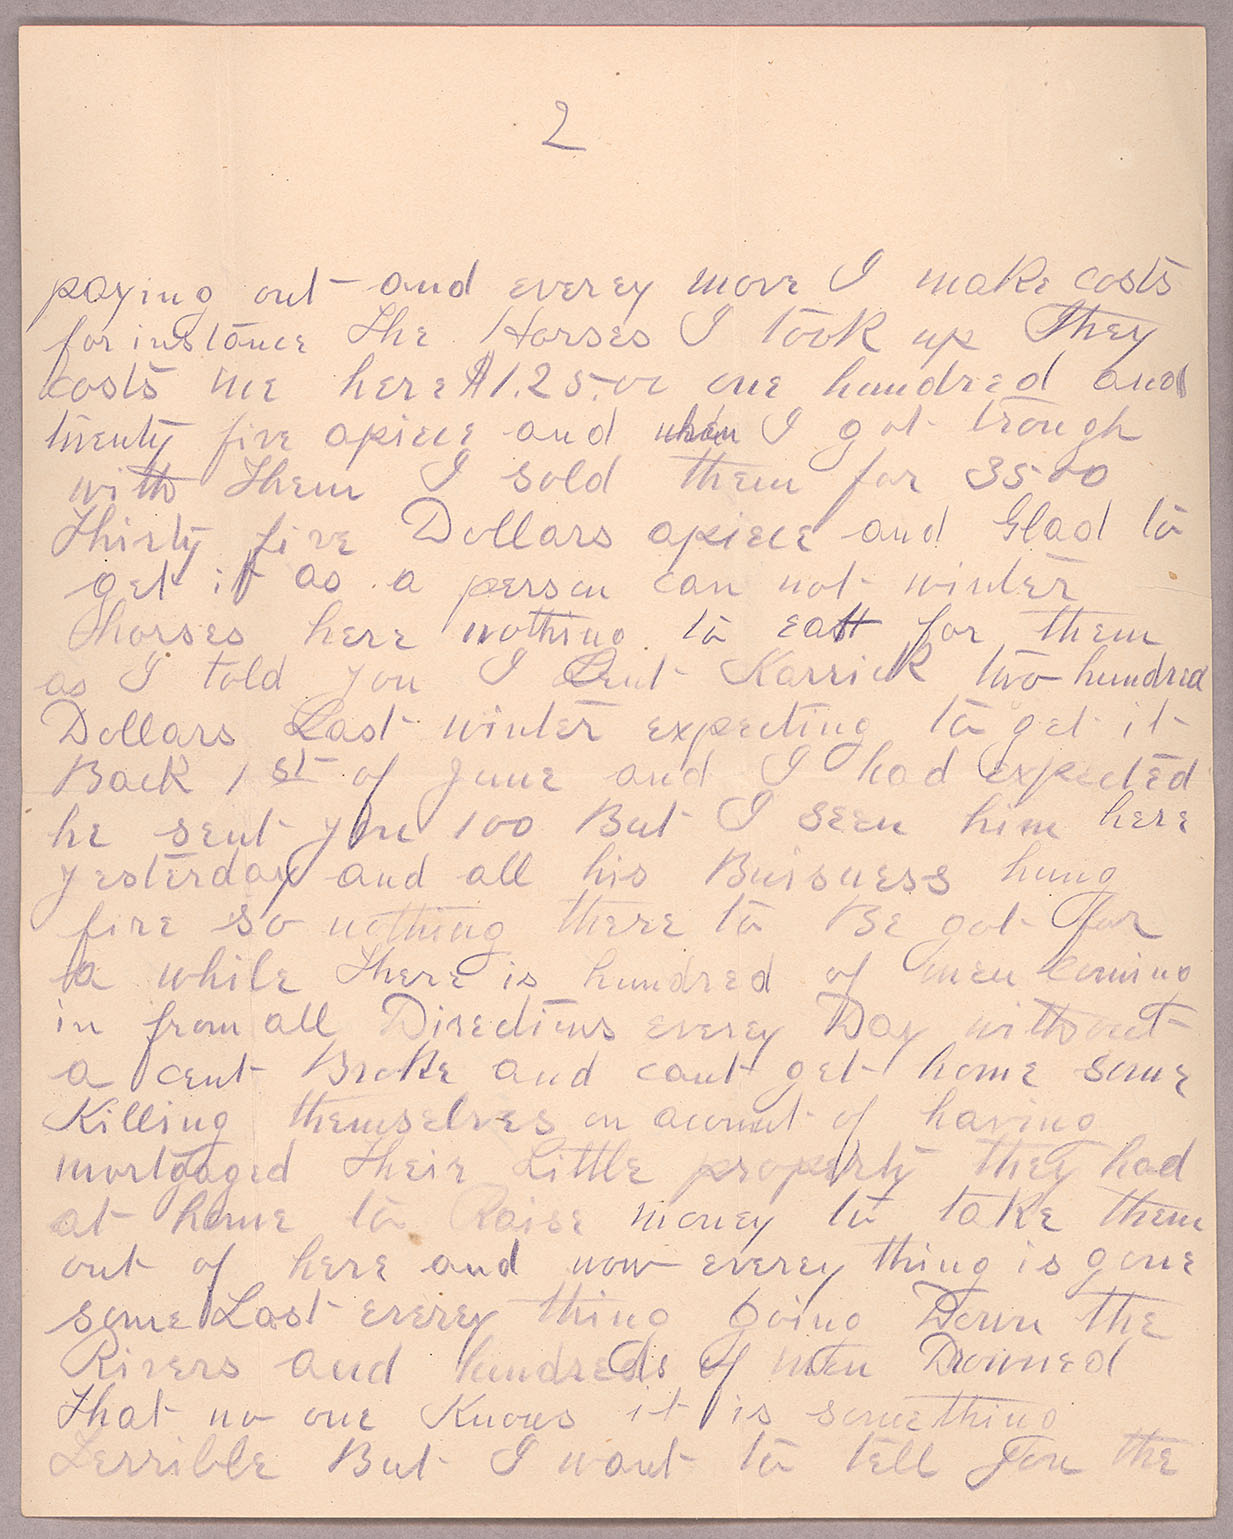 2
paying out - and everey move I make costs
for instance The Horses I took up They
costs me here $1.25.00 one hundred and
twenty five apiece and when I got trough
with Them I sold them for 3500
Thirty five Dollars apiece and Glad to
get it as a person can not winter
horses here nothing to eatt for them
as I told you I Lent Karrick two hundred
Dollars Last winter expecting to get it
Back 1st of June and I had expected
he sent you 100 But I seen him here
yesterday and all his Buisness hung
fire so nothing there to Be got for
a while There is hundred of men coming
in from all Directions everey Day without
a cent Broke and cant get home some
Killing themselves on acount of having
mortgaged Their Little property they had
at home to Raise money to take them
out of here and now everey thing is gone
some Last everey thing going Down the
Rivers and hundreds of men Drowned
That no one Knows it is something
Terrible But I want to tell you the